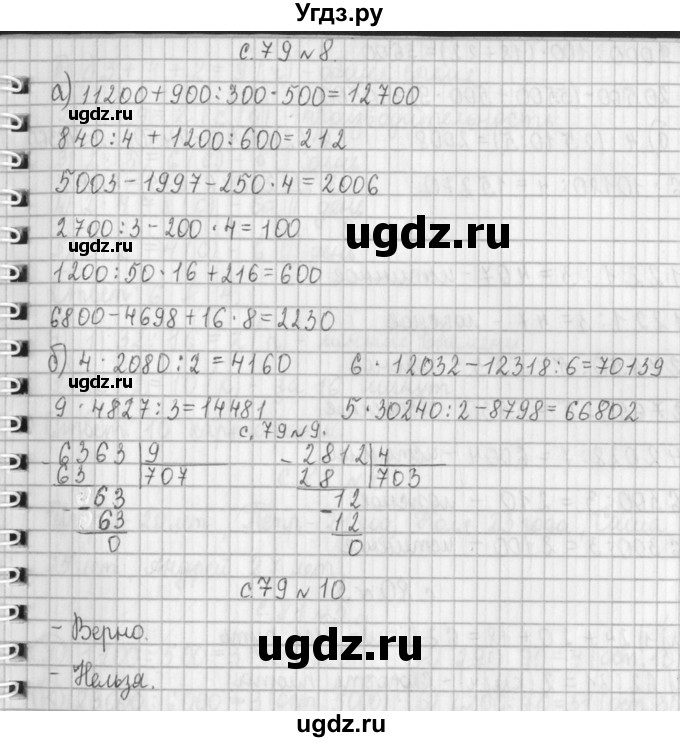 Угдз.ру
с.79 №8.
а) 11200+900:300·500=12700
ugdz.ru
840:4 + 1200:600=212
5003-1997-250·4=2006
2700:3-200·4=100
ugdz.ru
1200:50·16+216=600
6800-4698+16·8=2230
б) 4·2080:2=4160 6·12032-12318:6=70139
ugdz.ru
9·4827:3=14481 5·30240:2-8798=66802
с.79 №9.
- 6363 | 9 - 2812 | 4
63 | 707 28 | 703
- 63 - 12
63 12
0 0
с.79 №10
- Верно.
ugdz.ru
- Нельзя.
ugdz.ru
ugdz.ru